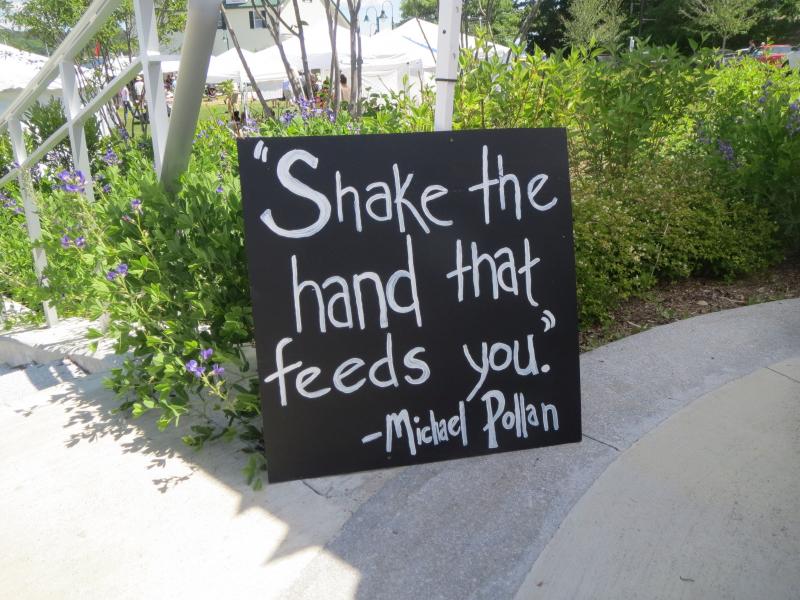 “Shake the
hand that
feeds you.”
-Michael Pollan